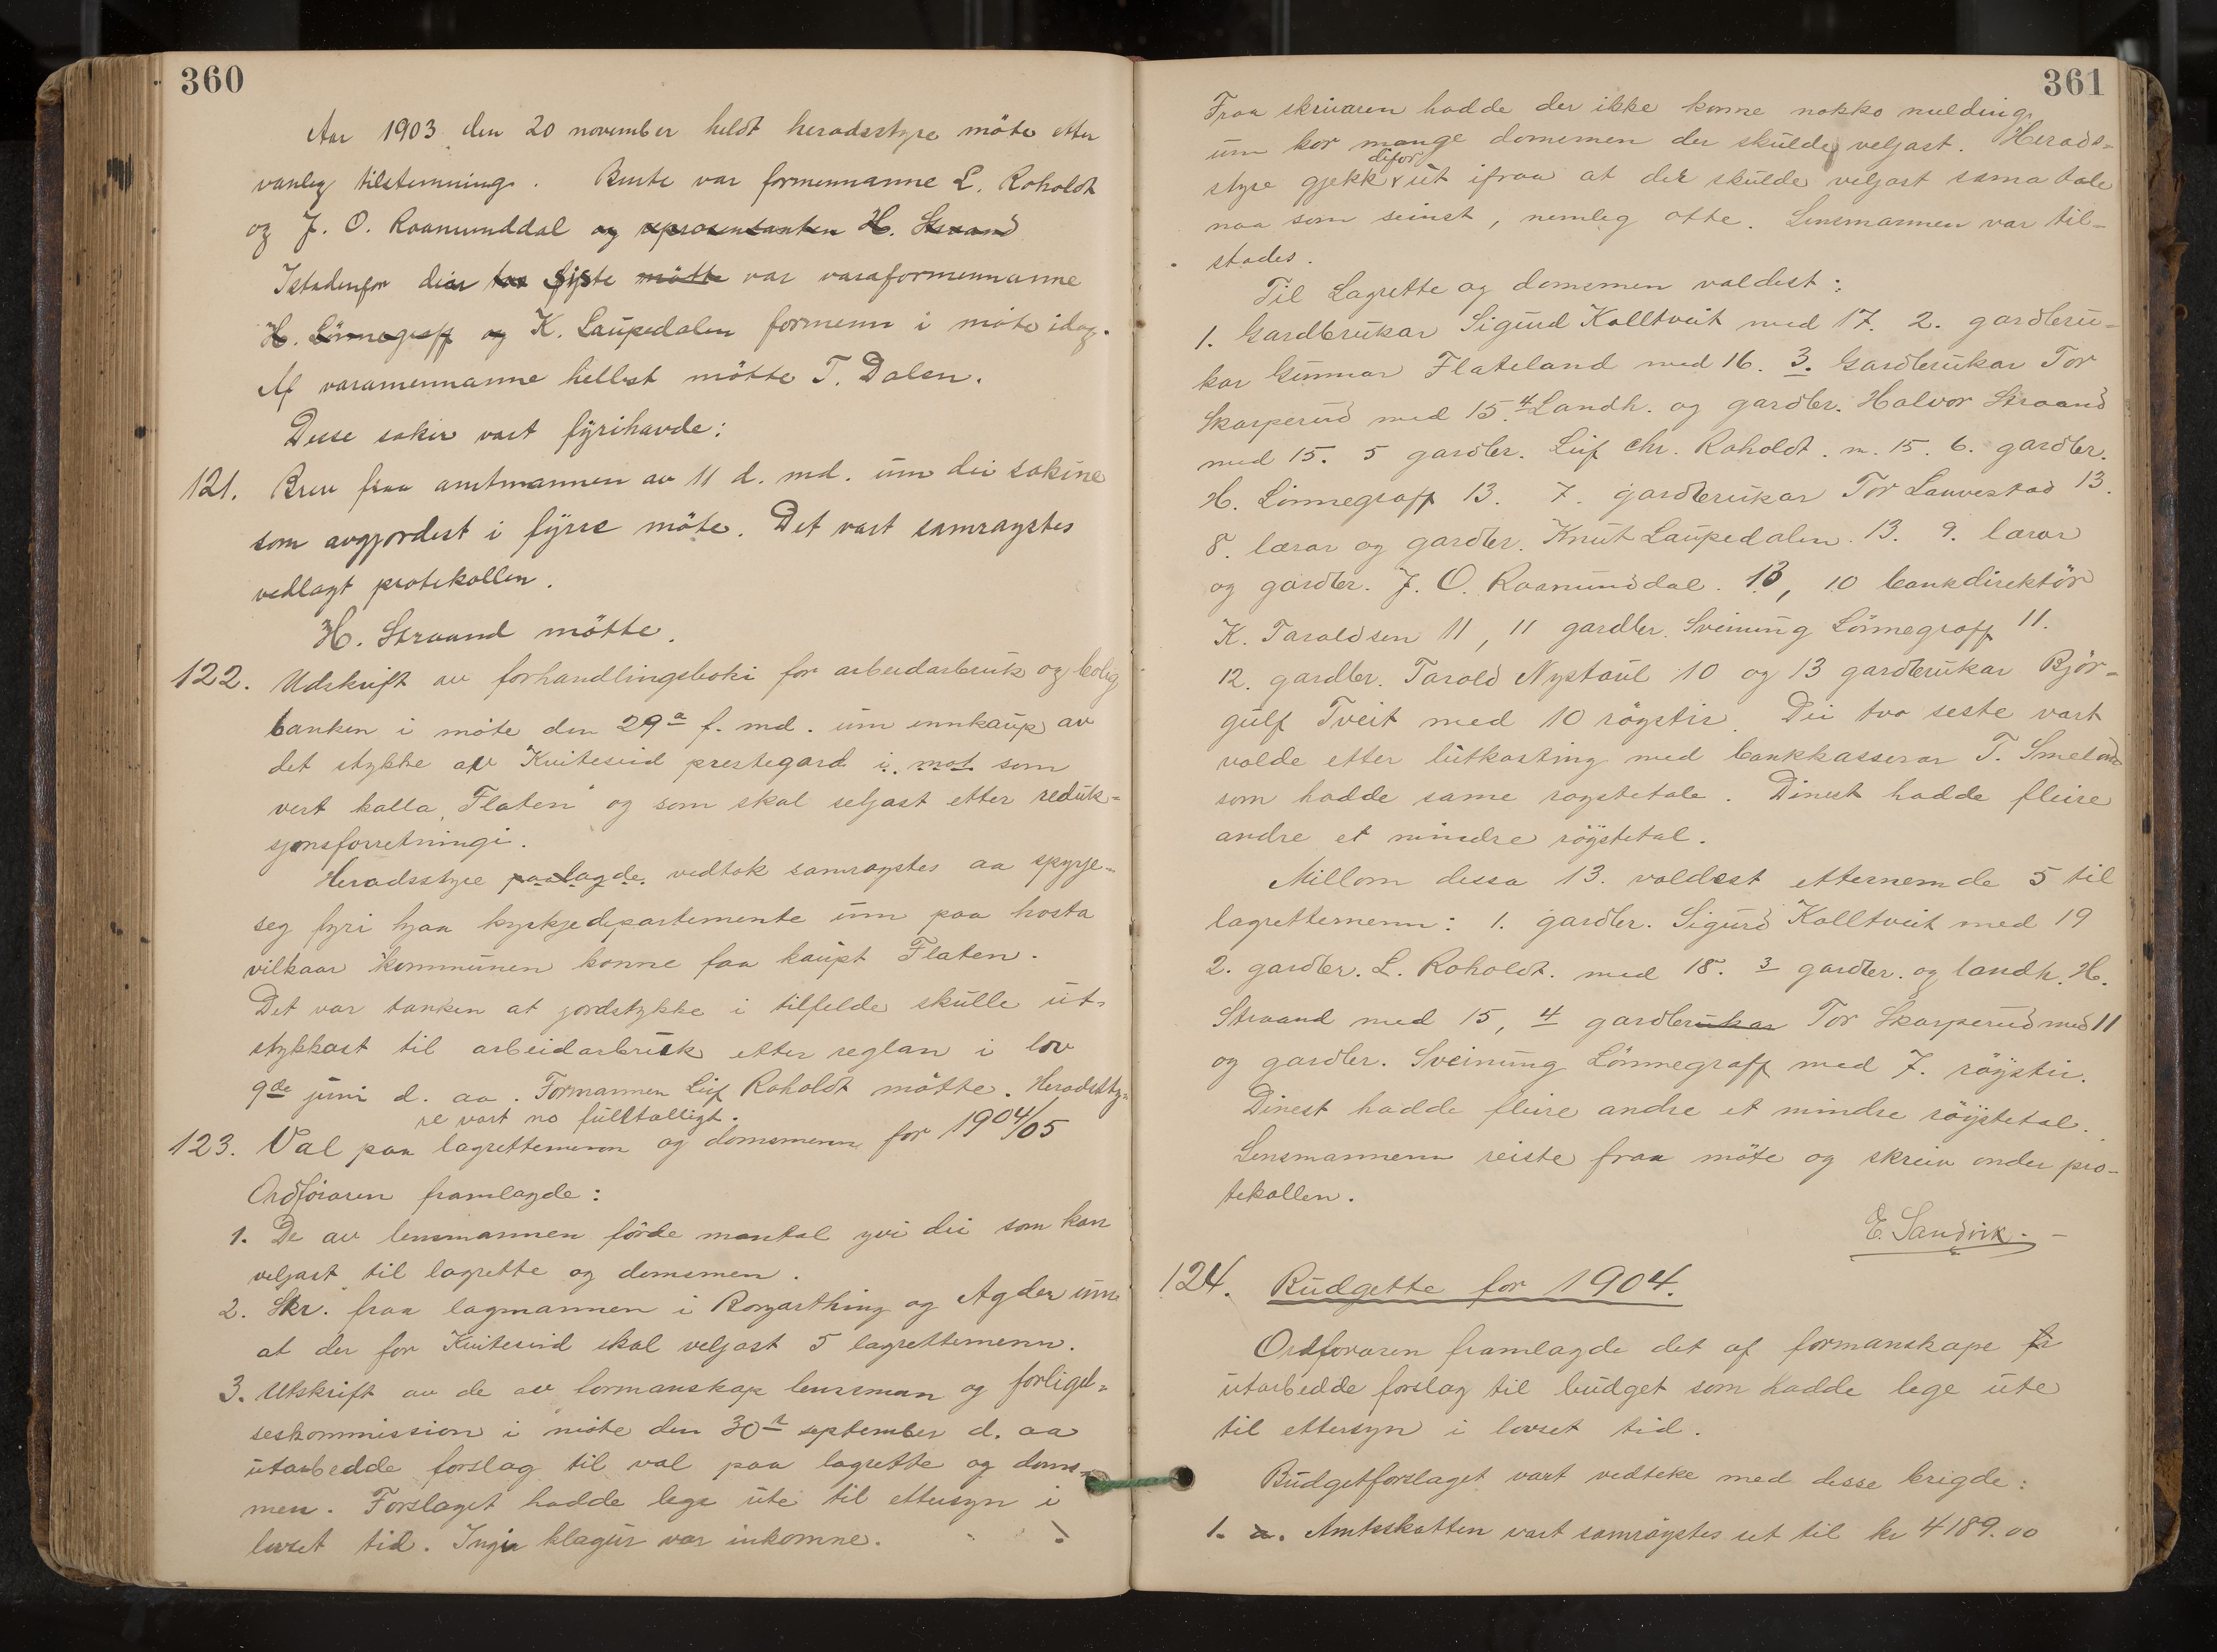 360
Aar 1903 den 20 november heldt heradsstyre möte etter
vanleg tilstemning. Burte var formennanne L. Roholdt
og J. O. Raamunddal og representanten H. Straand
Istadenfor deir tva fyste mötte var varaformennanne
H. Lönnegraff og K. Laupedalen formenn i möte idag.
Af varamennanne hellest mötte T. Dalen.
Desse saker vart fyrihavde:
121. Brev fraa amtmannen av 11 d. md. um dei sakine
som avgjordest i fyrre möte. Det vart samraystes
vedlagt protokollen.
H. Straand mötte.
122. Udskrift av forhandlingsboki for arbeidarbruk og bolig
banken i möte den 29a f. md. um innkaup av
det stykke av Kviteseid prestegard i mot som
vert kalla "Flaten" og som skal seljast etter reduk-
sjonsforretningi.
Heradsstyre paalagde vedtok samraystes aa spyrje
seg fyri hjaa kyrkjedepartemente um paa hosta
vilkaar kommunen konne faa kaupt Flaten.
Det var tanken at jordstykke i tilfelde skulle ut-
stykkast til arbeidarbruk etter reglan i lov
9de juni d. aa. Formannen Leif Roholdt mötte. Heradssty-
re vart no fulltalligt.
123. Val paa lagrettemenn og domsmenn for 1904/05
Ordföraren framlagde:
1. De av lensmannen förde mantal yvi dei som kan
veljast til lagrette og domsmen.
2. Skr. fraa lagmannen i Borgarthing og Agder um
at der for Kviteseid skal veljast 5 lagrettemenn.
3. Utskrift av de av formanskap lensman og forligel-
seskommission i möte den 30t september d. aa
utarbedde forslag til val paa lagrette og doms-
men. Forslaget hadde lege ute til ettersyn i
lovset tid. Ingja klagur var inkomne.
361
Fraa skrivaren hadde der ikke konne nokko melding
um kor mange domsmen der skulde veljast. Herads-
styre gjekk difor ut ifraa at der skulde veljast sama tale
naa som seinst, nemleg otte. Lensmannen var til-
stades.
Til Lagrette og domsmen valdest:
1. Gardbrukar Sigurd Kalltveit med 17. 2. gardbru-
kar Gunnar Flateland med 16. 3. Gardbrukar Tor
Skarperud med 15. 4 Landh. og gardbr. Halvor Straand
med 15. 5 gardbr. Leif Chr. Roholdt. m. 15. 6. gardbr.
H. Lönnegraff 13. 7. gardbrukar Tor Lauvestad 13.
8. lærar og gardbr. Knut Laupedalen. 13. 9. lærar
og gardbr. J. O. Raamunddal. 13, 10 bankdirektör
K. Taraldsen 11, 11 gardbr. Sveinung Lönnegraff 11.
12. gardbr. Tarald Nystaul 10 og 13 gardbrukar Björ-
gulf Tveit med 10 röystir. Dei tvo seste vart
valde etter lutkasting med bankkasserar T. Smeland
som hadde same raystetale. Dinest hadde fleire
andre et mindre röystetal.
Millom dessa 13. valdest etternemde 5 til
lagrettemenn: 1. gardbr. Sigurd Kalltveit med 19
2. gardbr. L. Roholdt. med 18. 3 gardbr. og landh. H.
Straand med 15, 4 gardbrukar Tor Skarperud med 11
og gardbr. Sveinung Lönnegraff med 7. röystir.
Dinest hadde fleire andre et mindre röystetal.
Lensmannenn reiste fraa möte og skreiv onder pro-
tekollen.
E. Sandvik.
124. Budgette for 1904.
Ordforaren framlagde det af formanskape fr
utarbedde forslag til budget som hadde lege ute
til ettersyn i lovset tid.
Budgetforslaget vart vedteke med desse brigde:
1. a. Amtsskatten vart samröystes set til kr 4189.00